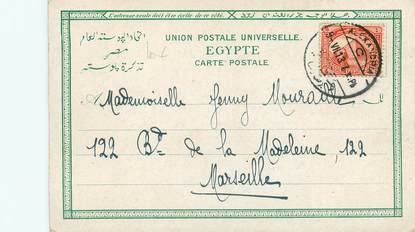 L'adresse seule doit être de ce côté.
اتحاد البوستة العام
مصر
تذكرة بوسته
UNION POSTALE UNIVERSELLE.
EGYPTE
CARTE POSTALE
Mademoiselle Jenny Mourad
122 Bd de la Madeleine, 122
Marseille